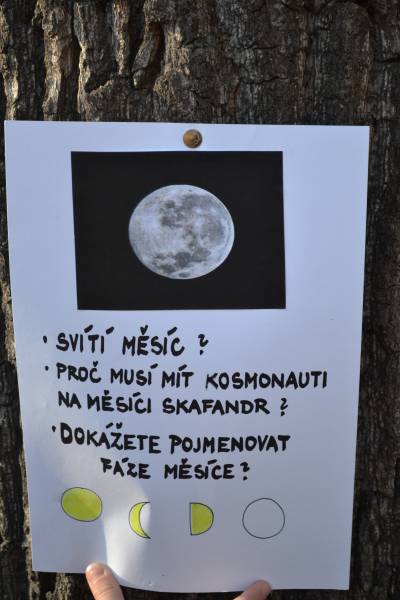 • SVÍTÍ MĚSÍC ?
• PROČ MUSÍ MÍT KOSMONAUTI
NA MĚSÍCI SKAFANDR ?
• DOKÁŽETE POJMENOVAT
FÁZE MĚSÍCE ?